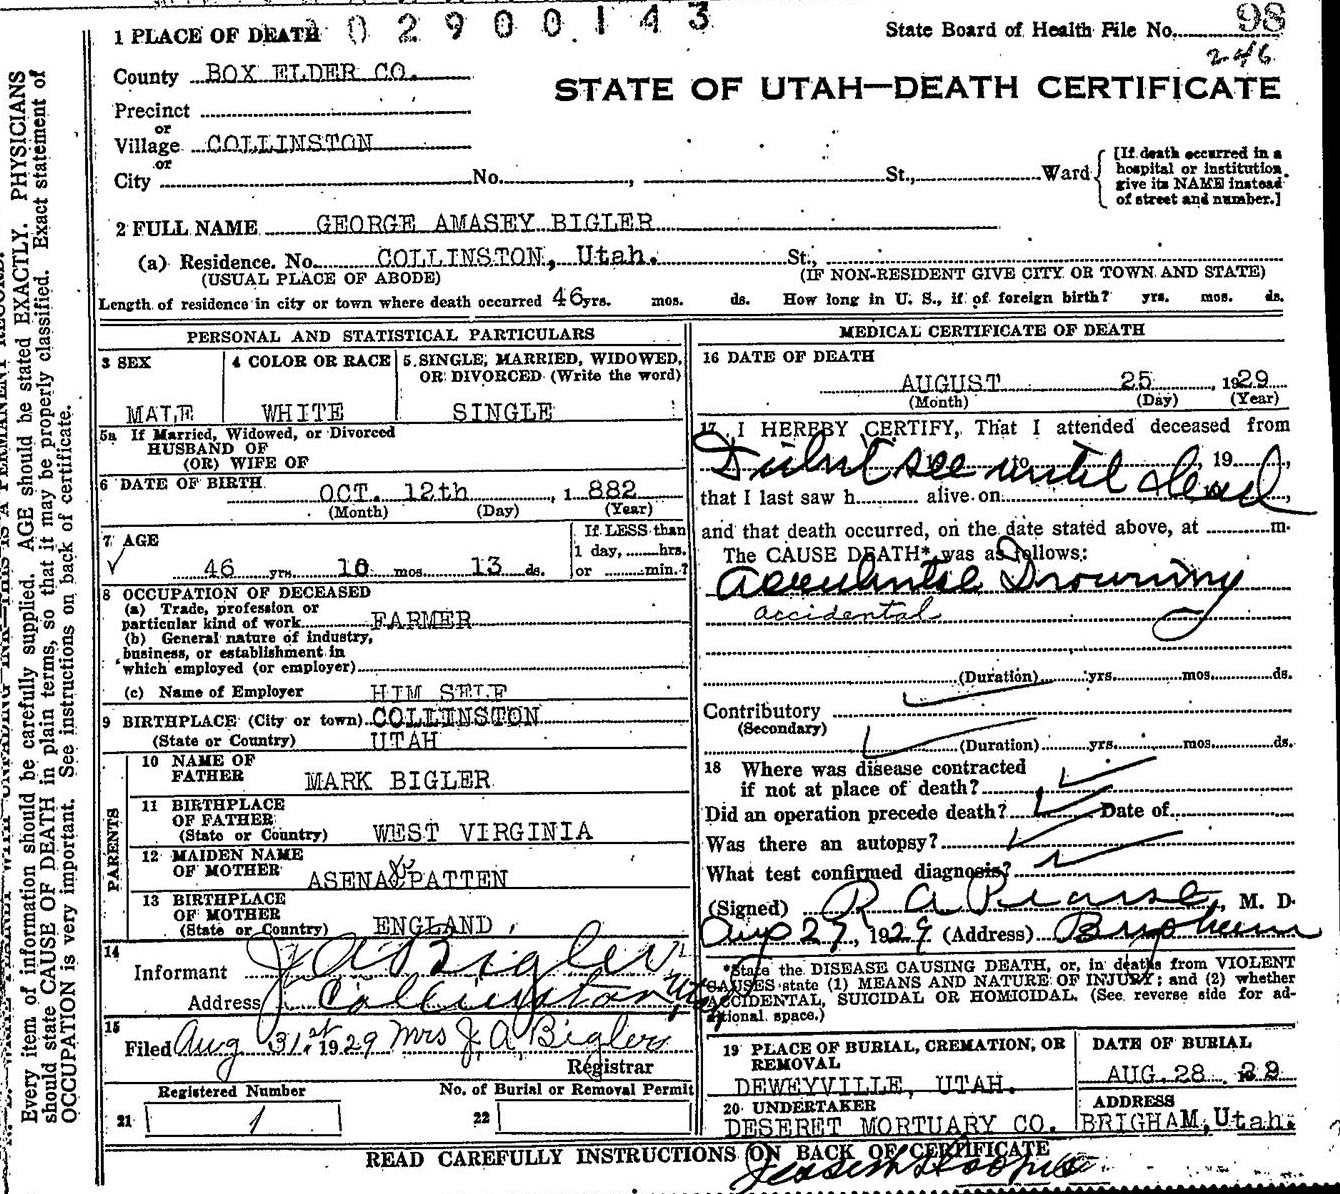 02900143
1 PLACE OF DEATH
State Board of Health File No. 98
246
County BOX ELDER CO.
STATE OF UTAH—DEATH CERTIFICATE
Precinct
or
Village COLLINSTON
or
City No. , St., Ward
[If death occurred in a
hospital or institution,
give its NAME instead
of street and number.]
2 FULL NAME GEORGE AMASEY BIGLER
(a) Residence. No. COLLINSTON, Utah. St.,
(USUAL PLACE OF ABODE) (IF NON-RESIDENT GIVE CITY OR TOWN AND STATE)
Length of residence in city or town where death occurred 46 yrs. mos. ds. How long in U. S., if of foreign birth? yrs. mos. ds.
PERSONAL AND STATISTICAL PARTICULARS
3 SEX
MALE
4 COLOR OR RACE
WHITE
5 SINGLE, MARRIED, WIDOWED,
OR DIVORCED (Write the word)
SINGLE
5a If Married, Widowed, or Divorced
HUSBAND OF
(OR) WIFE OF
6 DATE OF BIRTH
OCT. 12th , 1 882
(Month) (Day) (Year)
7 AGE
46 yrs. 10 mos. 13 ds.
If LESS than
1 day, hrs.
or min.?
8 OCCUPATION OF DECEASED
(a) Trade, profession or
particular kind of work FARMER
(b) General nature of industry,
business, or establishment in
which employed (or employer)
(c) Name of Employer HIM SELF
9 BIRTHPLACE (City or town) COLLINSTON
(State or Country) UTAH
PARENTS
10 NAME OF
FATHER MARK BIGLER
11 BIRTHPLACE
OF FATHER
(State or Country) WEST VIRGINIA
12 MAIDEN NAME
OF MOTHER ASENA PATTEN
13 BIRTHPLACE
OF MOTHER
(State or Country) ENGLAND
14
Informant J A Bigler
Address Collinston, Utah
15
Filed Aug 31st 1929 Mrs J. A. Bigler
Registrar
Registered Number
21 1
No. of Burial or Removal Permit
22
MEDICAL CERTIFICATE OF DEATH
16 DATE OF DEATH
AUGUST 25 , 1929
(Month) (Day) (Year)
17 I HEREBY CERTIFY, That I attended deceased from
Didnt see until dead
to , 19 ,
that I last saw h alive on ,
and that death occurred, on the date stated above, at m.
The CAUSE DEATH* was as follows:
Accidental Drowning
accidental
(Duration) yrs. mos. ds.
Contributory
(Secondary)
(Duration) yrs. mos. ds.
18 Where was disease contracted
if not at place of death?
Did an operation precede death? Date of
Was there an autopsy?
What test confirmed diagnosis?
(Signed) R A Pearse, M. D.
Aug 27, 1929 (Address) Brigham
*State the DISEASE CAUSING DEATH, or, in deaths from VIOLENT
CAUSES state (1) MEANS AND NATURE OF INJURY; and (2) whether
ACCIDENTAL, SUICIDAL OR HOMICIDAL. (See reverse side for ad-
ditional space.)
19 PLACE OF BURIAL, CREMATION, OR
REMOVAL
DEWEYVILLE, UTAH.
DATE OF BURIAL
AUG. 28 29
20 UNDERTAKER
DESERET MORTUARY CO.
ADDRESS
BRIGHAM, Utah.
READ CAREFULLY INSTRUCTIONS ON BACK OF CERTIFICATE
Every item of information should be carefully supplied. AGE should be stated EXACTLY. PHYSICIANS
should state CAUSE OF DEATH in plain terms, so that it may be properly classified. Exact statement of
OCCUPATION is very important. See instructions on back of certificate.